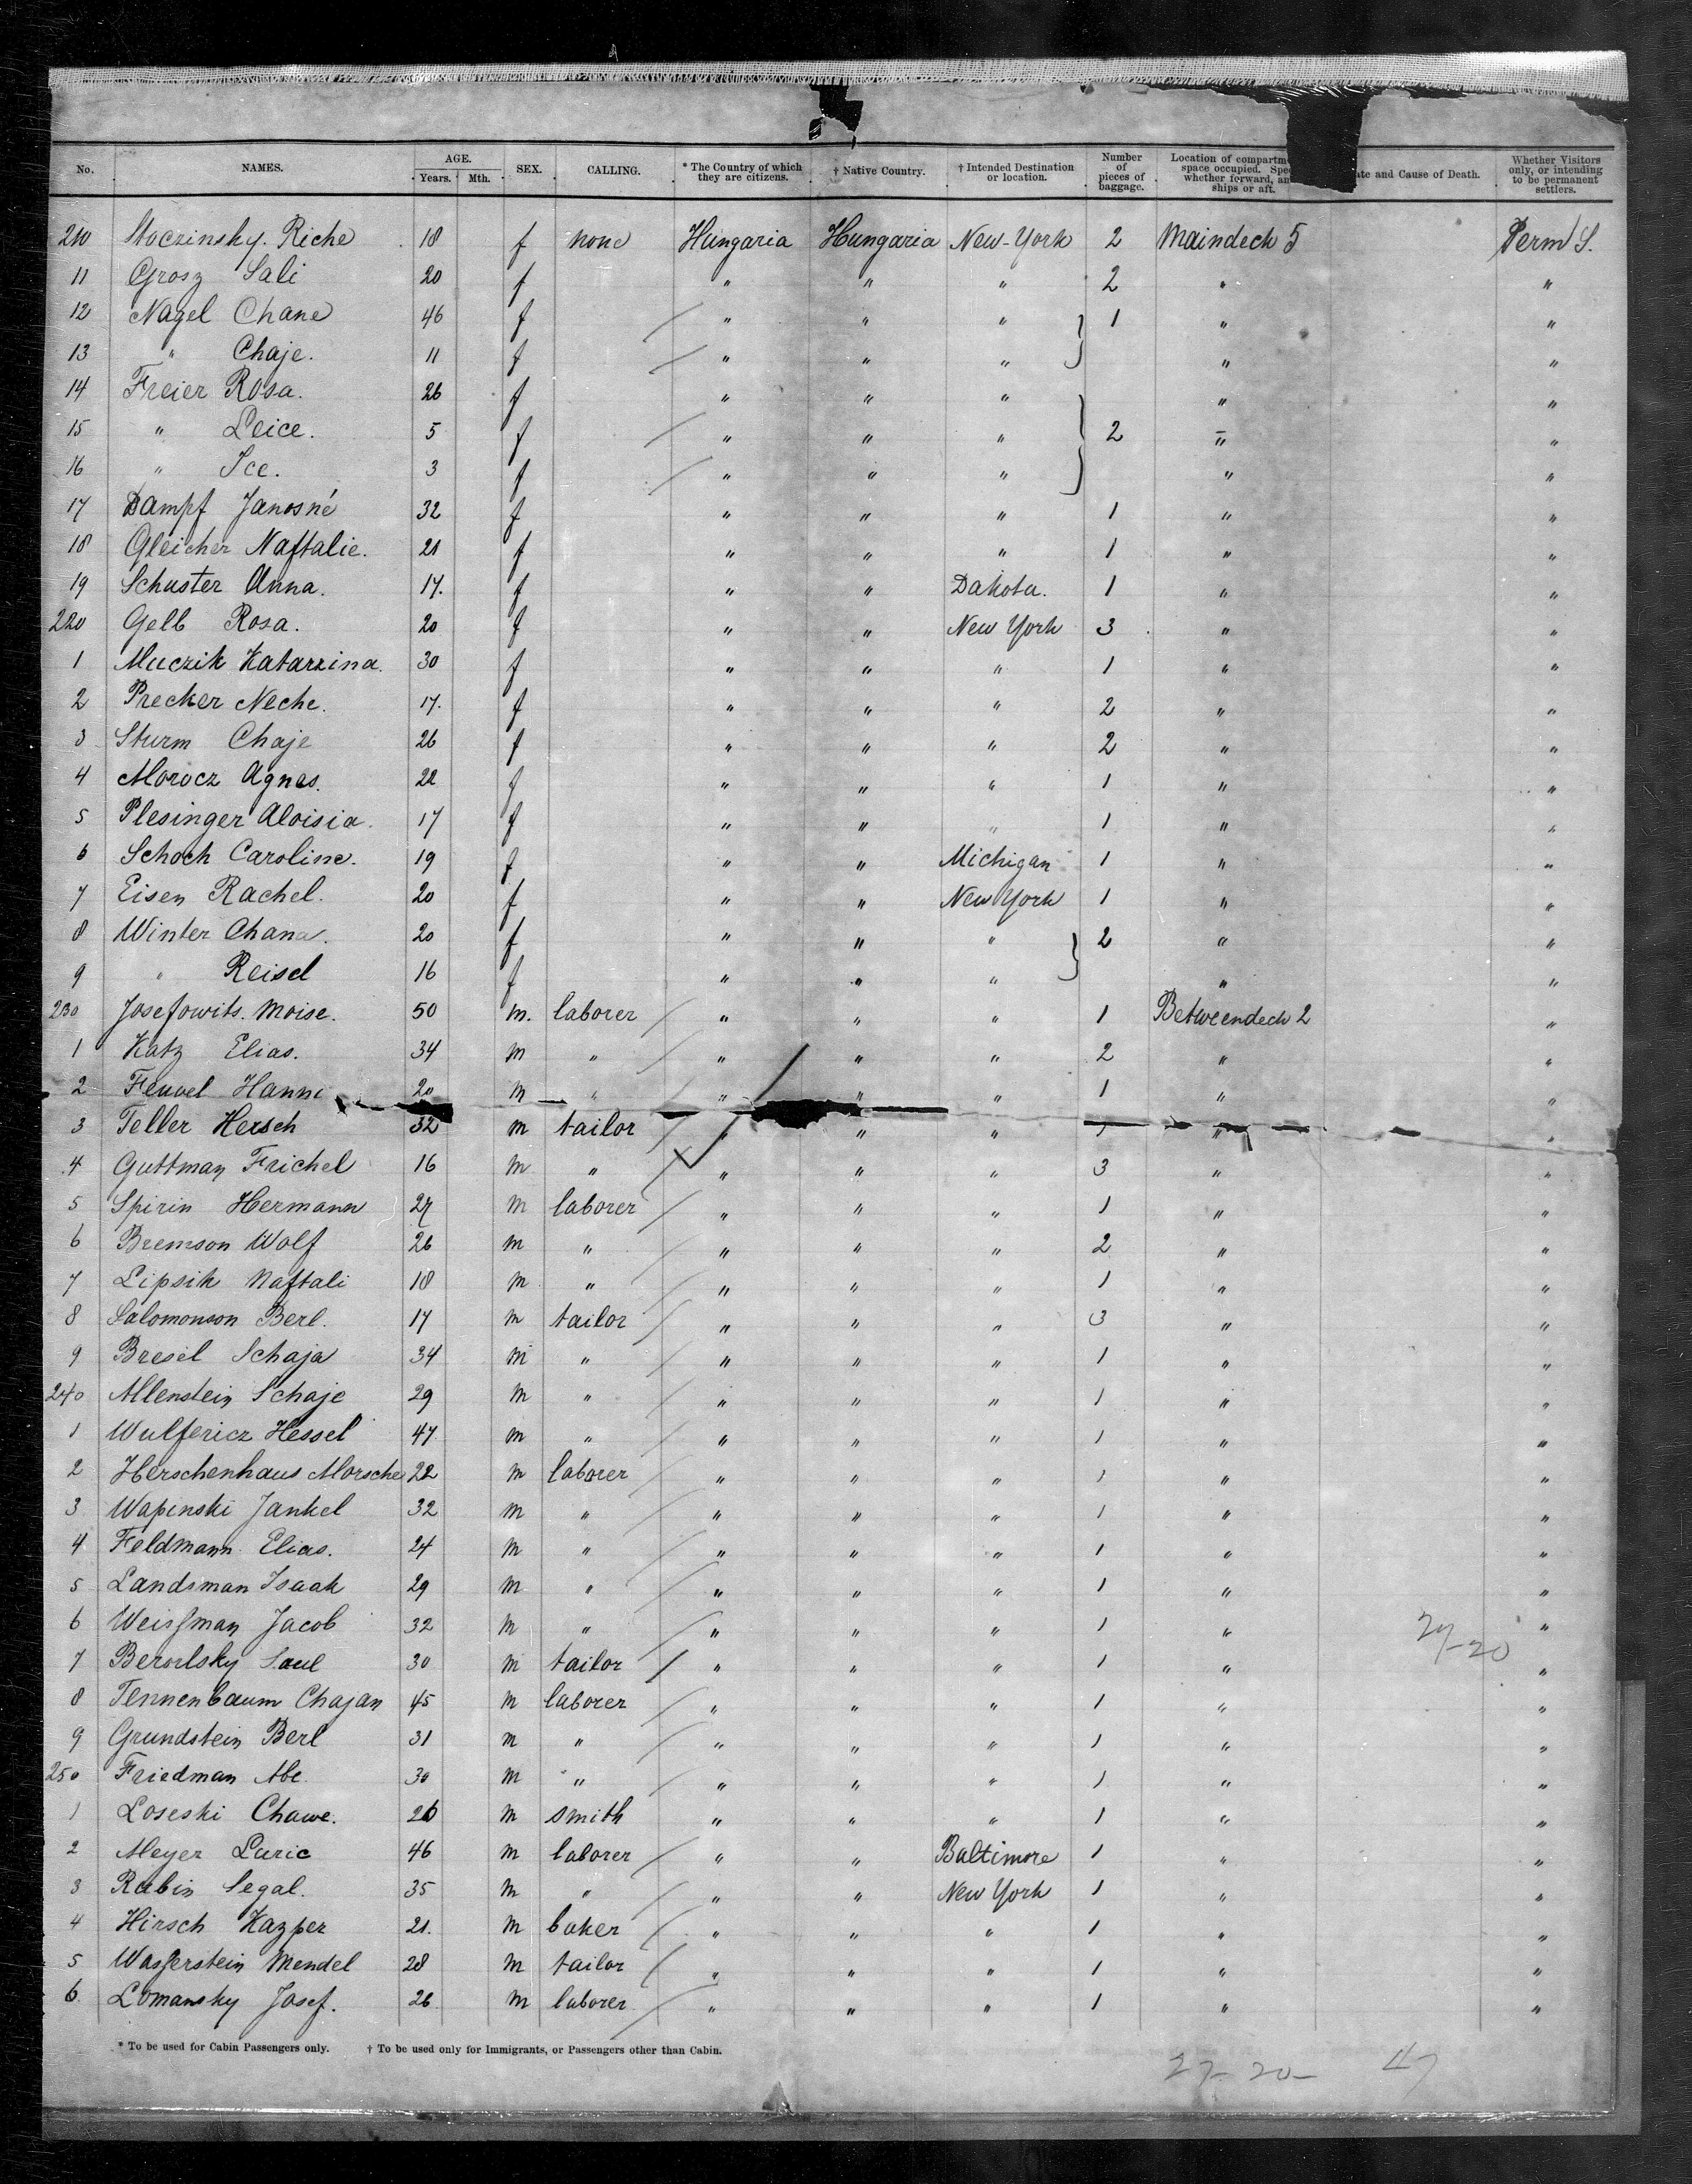 No. NAMES. AGE. Years. Mth. SEX. CALLING. * The Country of which they are citizens. † Native Country. † Intended Destination or location. Number of pieces of baggage. Location of compartm space occupied. Spe whether forward, an ships or aft. ate and Cause of Death. Whether Visitors only, or intending to be permanent settlers.
210 Stoczinsky. Riche 18 f none Hungaria Hungaria New-York 2 Maindeck 5 Perm S.
11 Grosz Sali 20 f " " " 2 " "
12 Nagel Chane 46 f " " " 1 " "
13 " Chaje. 11 f " " " " "
14 Freier Rosa. 26 f " " " " "
15 " Leice. 5 f " " " 2 " "
16 " Ice. 3 f " " " " "
17 Dampf Janosné 32 f " " " 1 " "
18 Gleicher Naftalie. 21 f " " " 1 " "
19 Schuster Anna. 17. f " " Dakota. 1 " "
220 Gelb Rosa. 20 f " " New York 3 " "
1 Muczik Katarzina. 30 f " " " 1 " "
2 Precker Neche. 17. f " " " 2 " "
3 Sturm Chaje 26 f " " " 2 " "
4 Morocz Agnes. 22 f " " " 1 " "
5 Plesinger Aloisia. 17 f " " " 1 " "
6 Schoch Caroline. 19 f " " Michigan 1 " "
7 Eisen Rachel. 20 f " " New York 1 " "
8 Winter Chana. 20 f " " " 2 " "
9 " Reisel 16 f " " " " "
230 Josefowits. Moise. 50 m. laborer " " " 1 Betweendeck 2 "
1 Katz Elias. 34 m " " " " 2 " "
2 Feuvel Hanne 20 m " " " " 1 " "
3 Teller Hersch 32 m tailor " " " 1 " "
4 Guttman Frichel 16 m " " " " 3 " "
5 Spirin Hermann 27 m laborer " " " 1 " "
6 Bremson Wolf 26 m " " " " 2 " "
7 Lipsik Naftali 18 m " " " " 1 " "
8 Salomonson Berl. 17 m tailor " " " 3 " "
9 Bresel Schaja 34 m " " " " 1 " "
240 Allenstein Schaje 29 m " " " " 1 " "
1 Wulfericz Hessel 47 m " " " " 1 " "
2 Herschenhaus Morsche 22 m laborer " " " 1 " "
3 Wapinski Jankel 32 m " " " " 1 " "
4 Feldmann Elias. 24 m " " " " 1 " "
5 Landsman Isaak 29 m " " " " 1 " "
6 Weissman Jacob 32 m " " " " 1 " "
27-20
7 Saul 30 m tailor " " " 1 " "
8 Tennenbaum Chajan 45 m laborer " " " 1 " "
9 Grundstein Berl 31 m " " " " 1 " "
250 Friedman Abe 30 m " " " " 1 " "
1 Loseski Chawe. 26 m smith " " " 1 " "
2 Meyer Luric 46 m laborer " " Baltimore 1 " "
3 Rubin Segal. 35 m " " " New York 1 " "
4 Hirsch Kazper 21. m baker " " " 1 " "
5 Wasserstein Mendel 28 m tailor " " " 1 " "
6 Lomansky Josef. 26 m laborer " " " 1 " "
* To be used for Cabin Passengers only. † To be used only for Immigrants, or Passengers other than Cabin.
27-20- 47